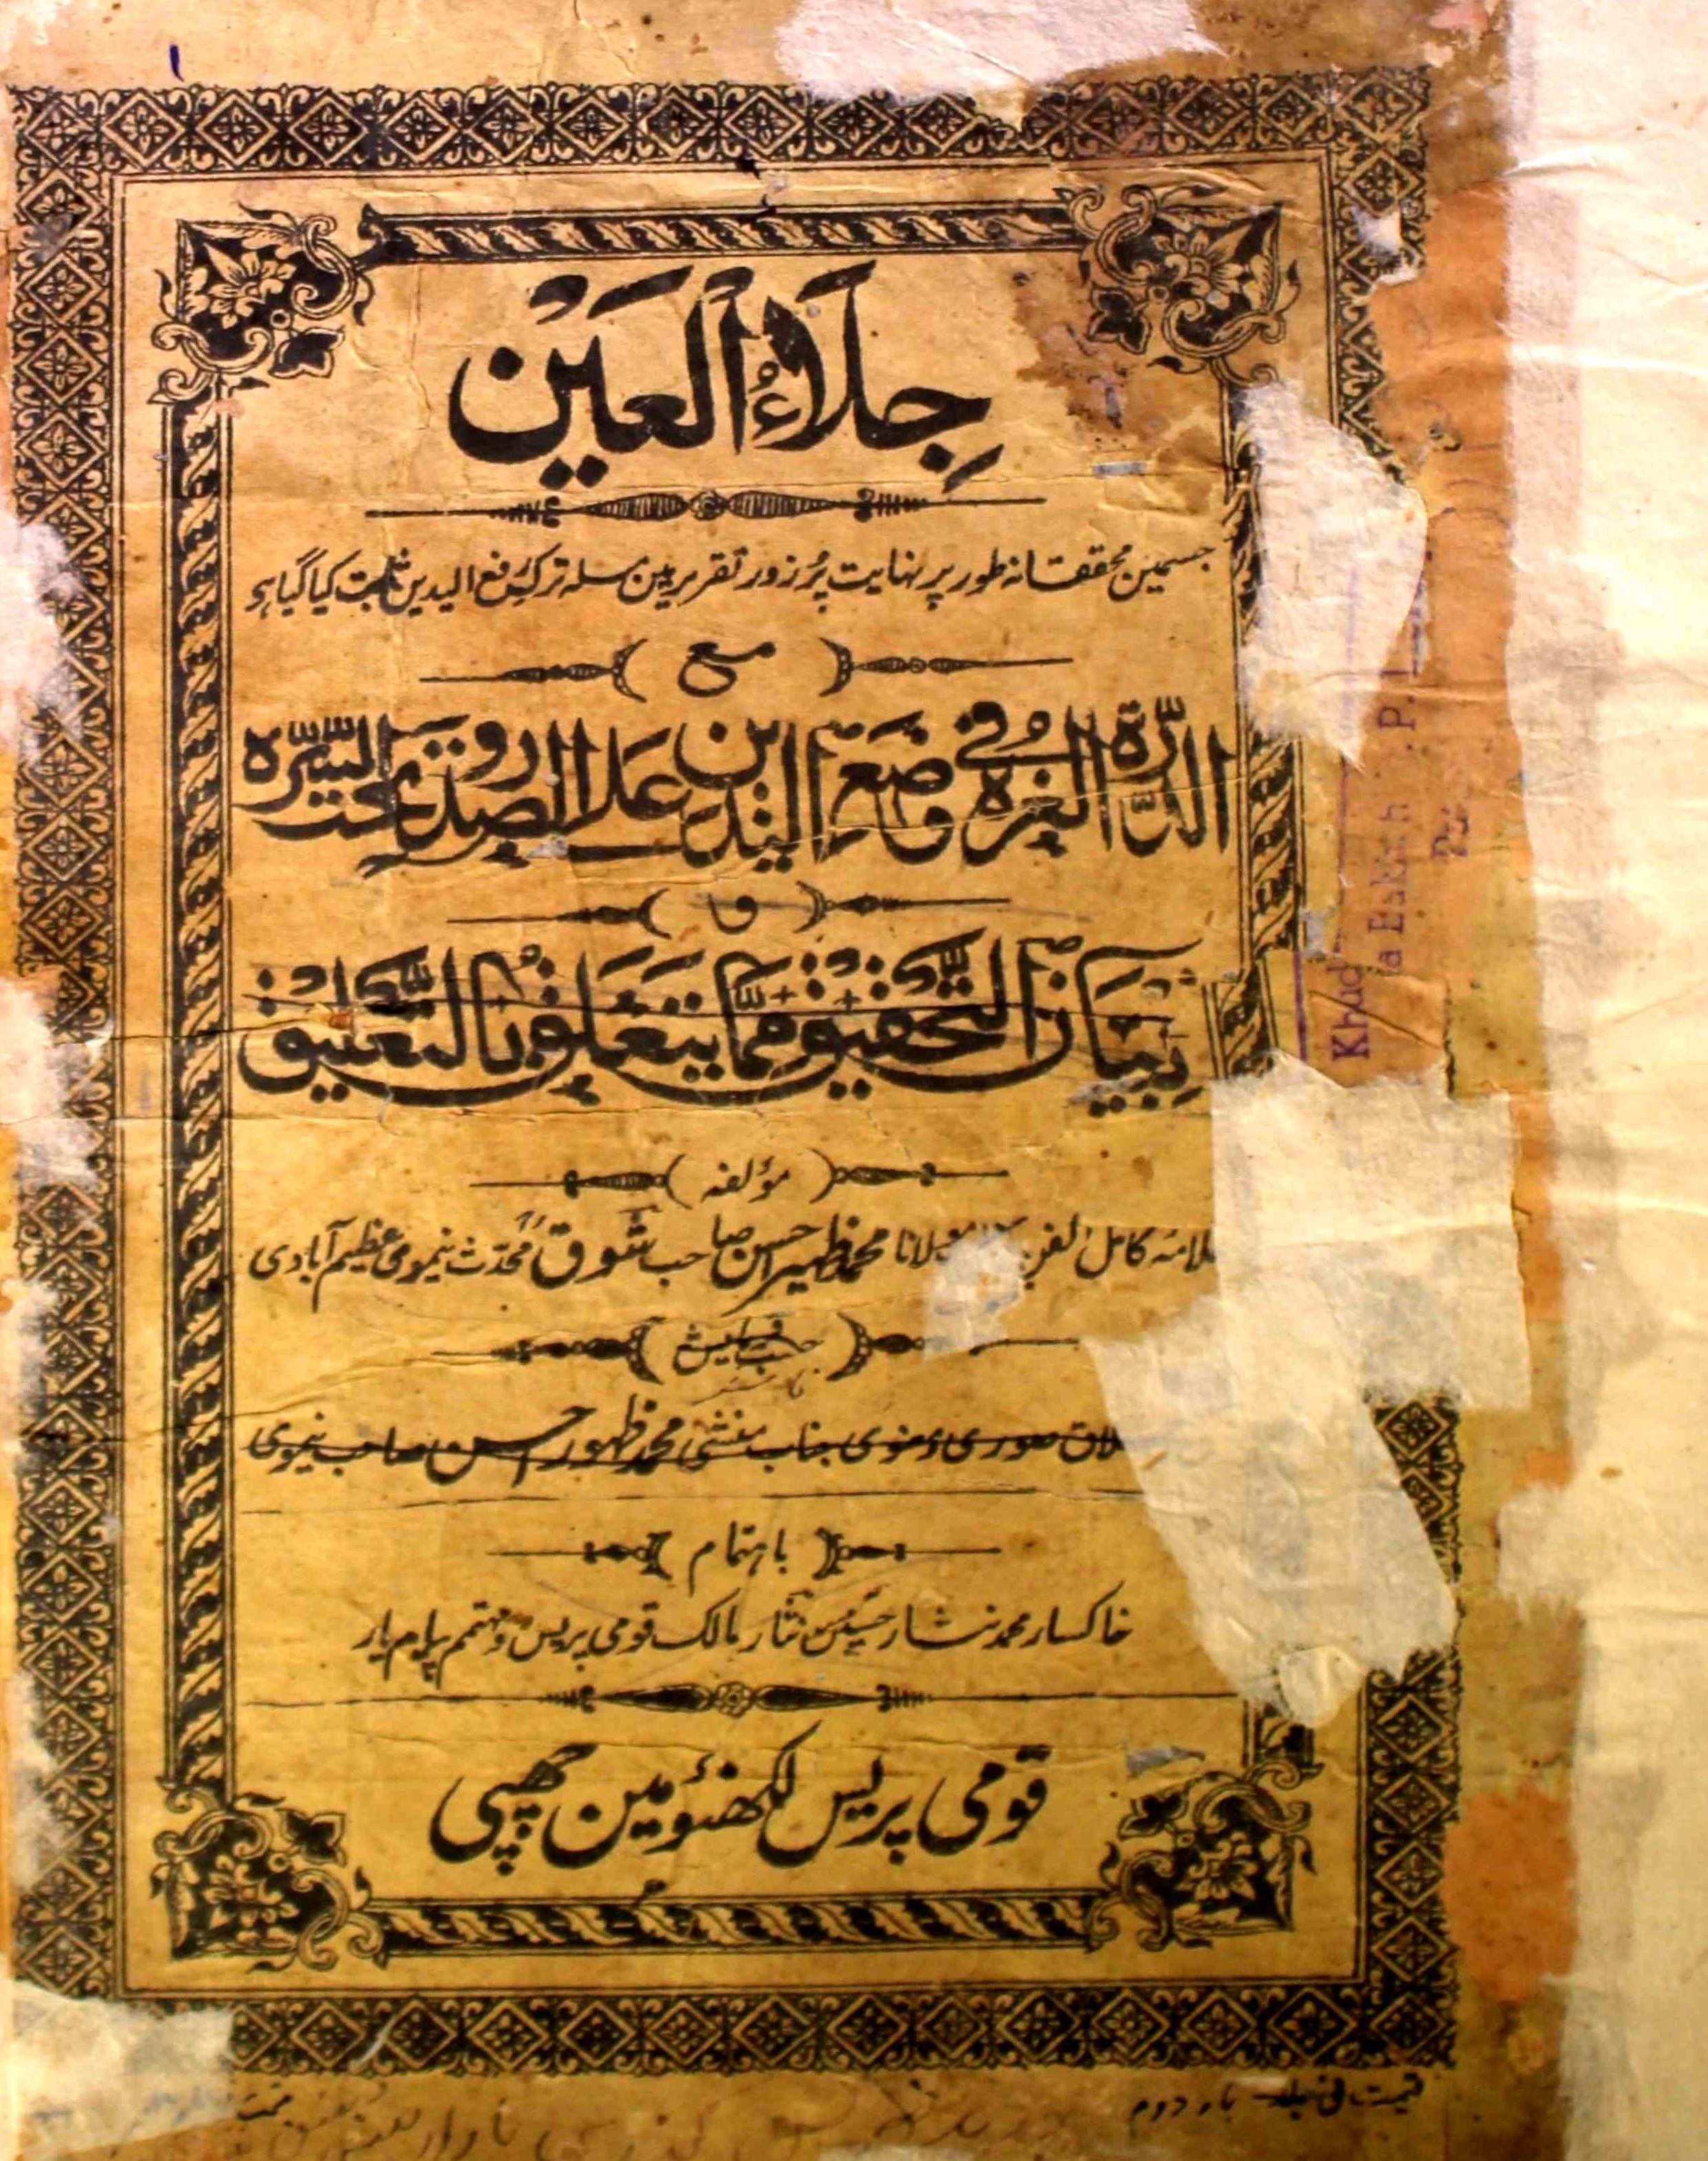 جِلَاءُ الْعَيْن
جسمین محققانہ طور پر نہایت پُر زور تقریر مین مسلہ ترک رفع الیدین ثابت کیا گیا ہے
مع
الدُّرَّۃُ الغُرَّہ فِیْ وَضَعِ الیَدَیْن عَلَی الصُّدُوْر وَتَحْتَ السُّرَّہ
و
تِبْیَانُ التَّحْقِیْق مِمَّا یَتَعَلَّقُ بِالتَّعْلِیْق
مؤلفہ
لامہ کامل الفن مولانا محمد ظہیر احسن صاحب شوق محدّث نیموی عظیم آبادی
حسب فرمایش
لاق صوری و معنوی جناب منشی محمد ظہور احسن صاحب نیموی
باہتمام
خاکسار محمد نثار حسین نثار مالک قومی پریس و مہتمم پیام یار
قومی پریس لکھنؤ مین چھپی
قیمت فی جلد بار دوم
Khud a Bakhsh P. L.
Pa